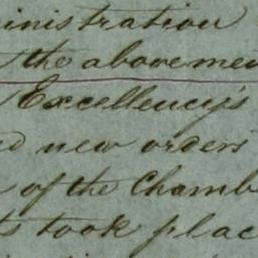 inistration
the abovemen
Excellency's
d new orders
of the Chamb
ts took plac